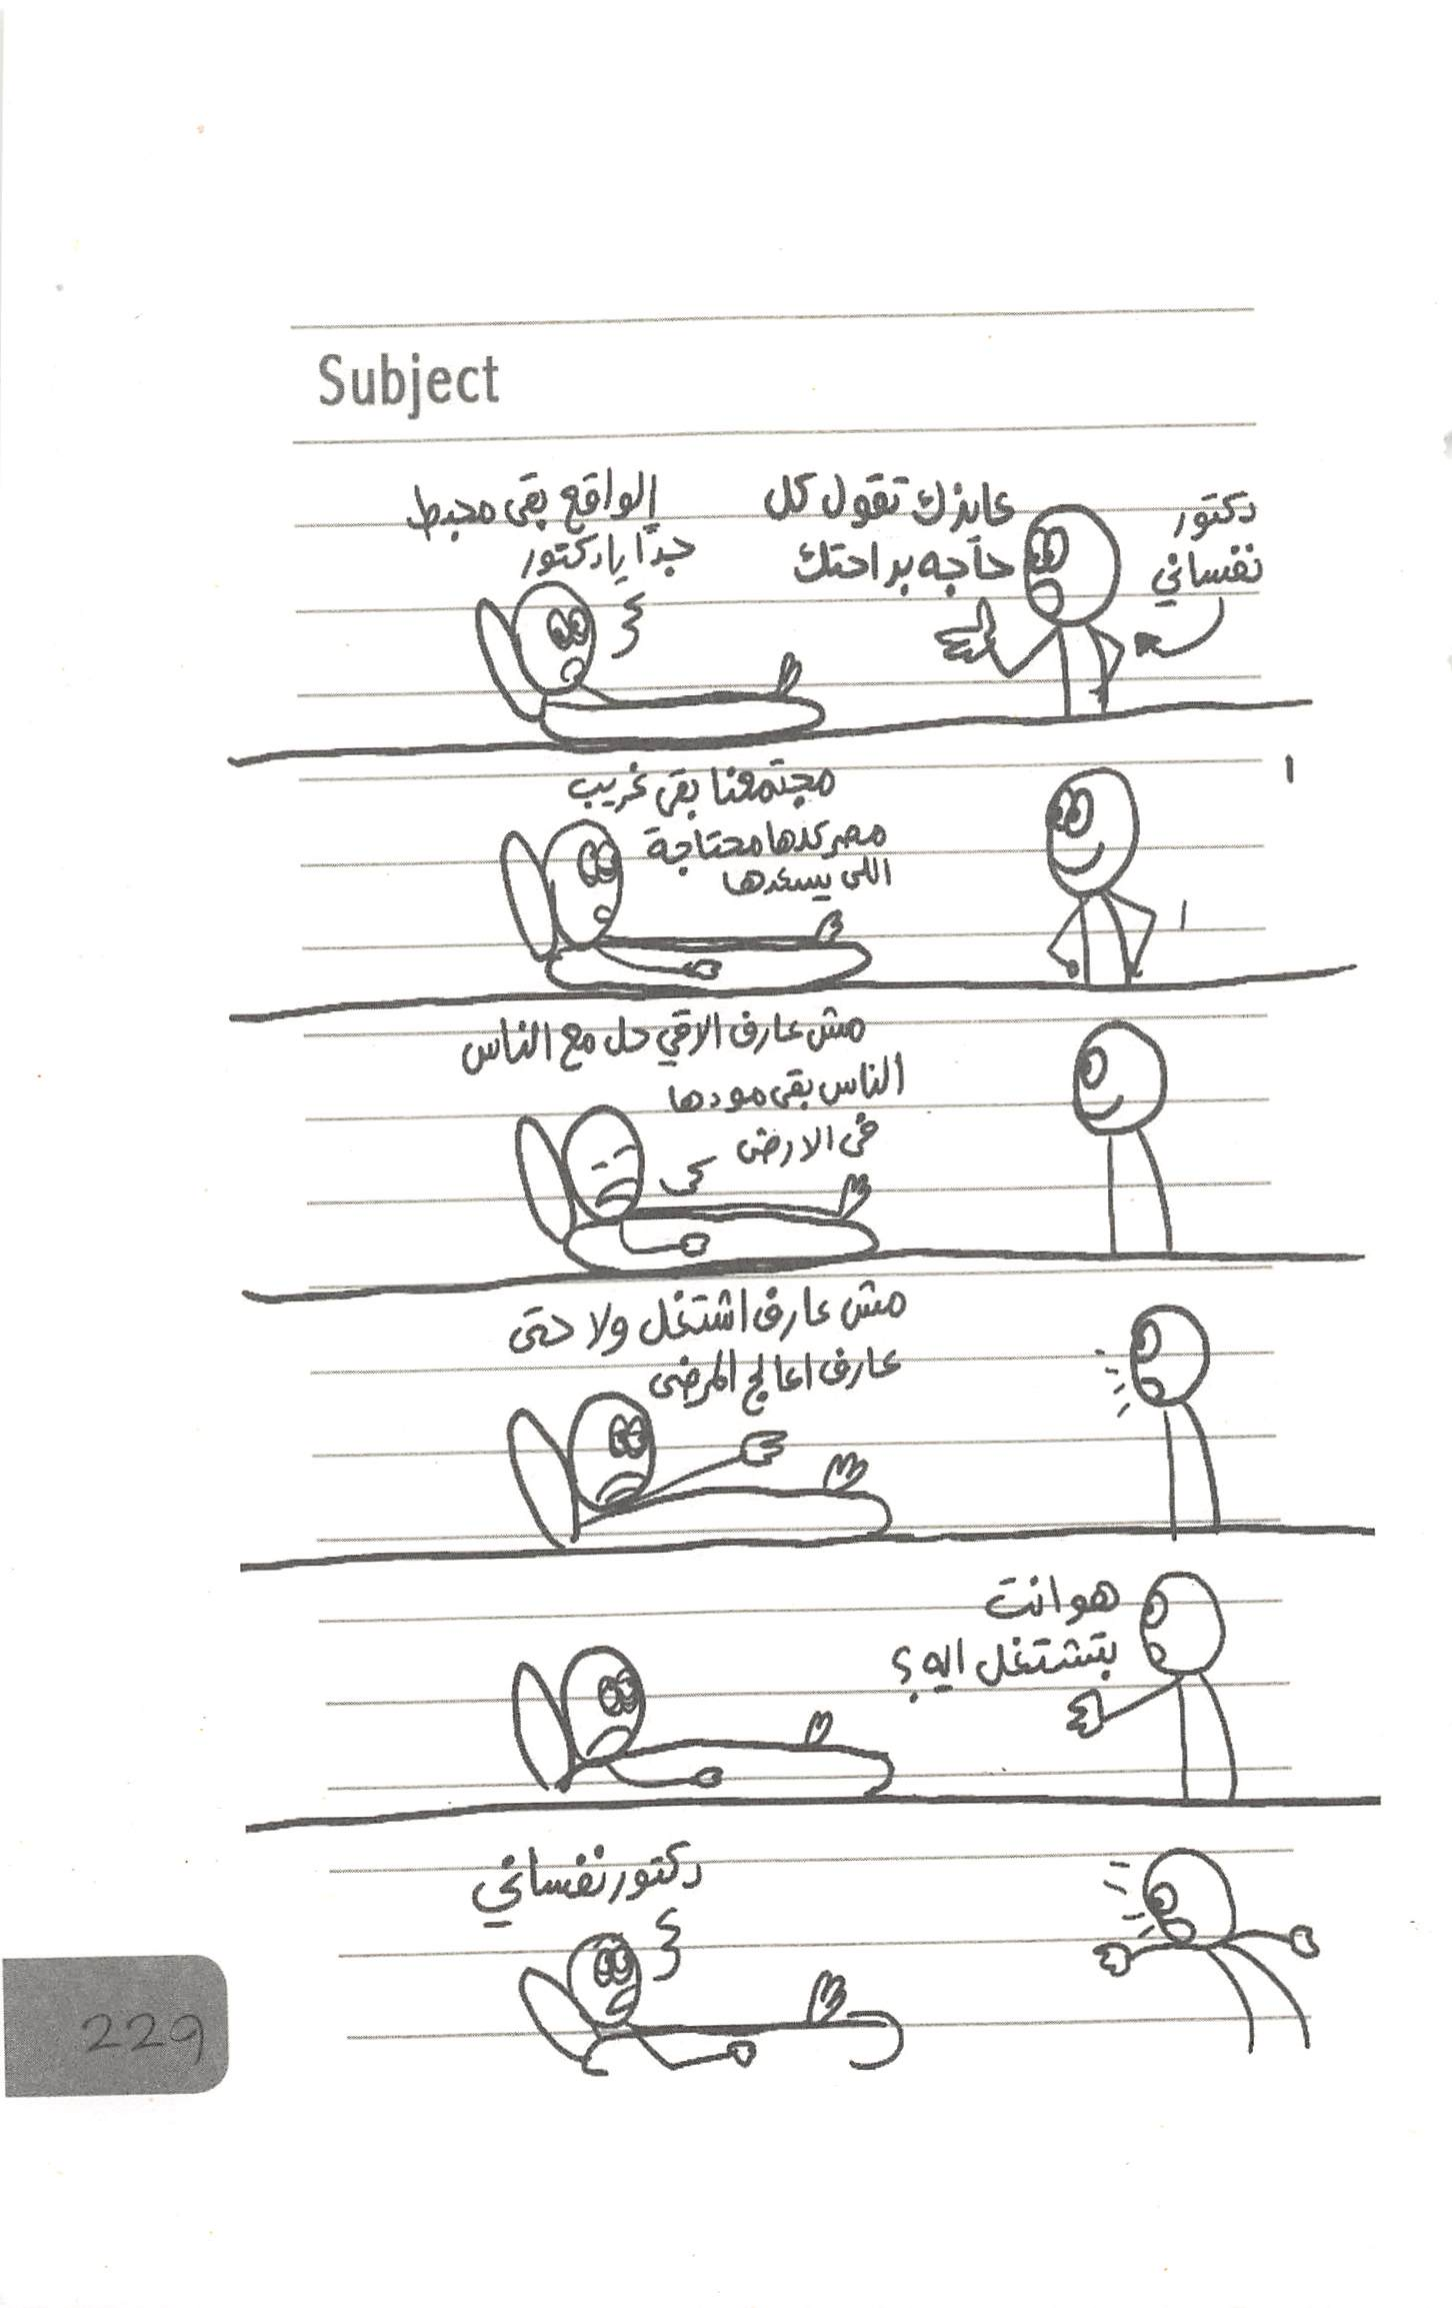 Subject
دكتور
نفساني
عايزك تقول كل
حاجه براحتك
الواقع بقى محبط
جدًا يا دكتور
مجتمعنا بقى غريب
مصر كلها محتاجة
اللى يسعدها
مش عارف الاقي حل مع الناس
الناس بقى مودها
فى الارض
مش عارف اشتغل ولا حتى
عارف اعالج المرضى
هو انت
بتشتغل ايه؟
دكتور نفساني
229